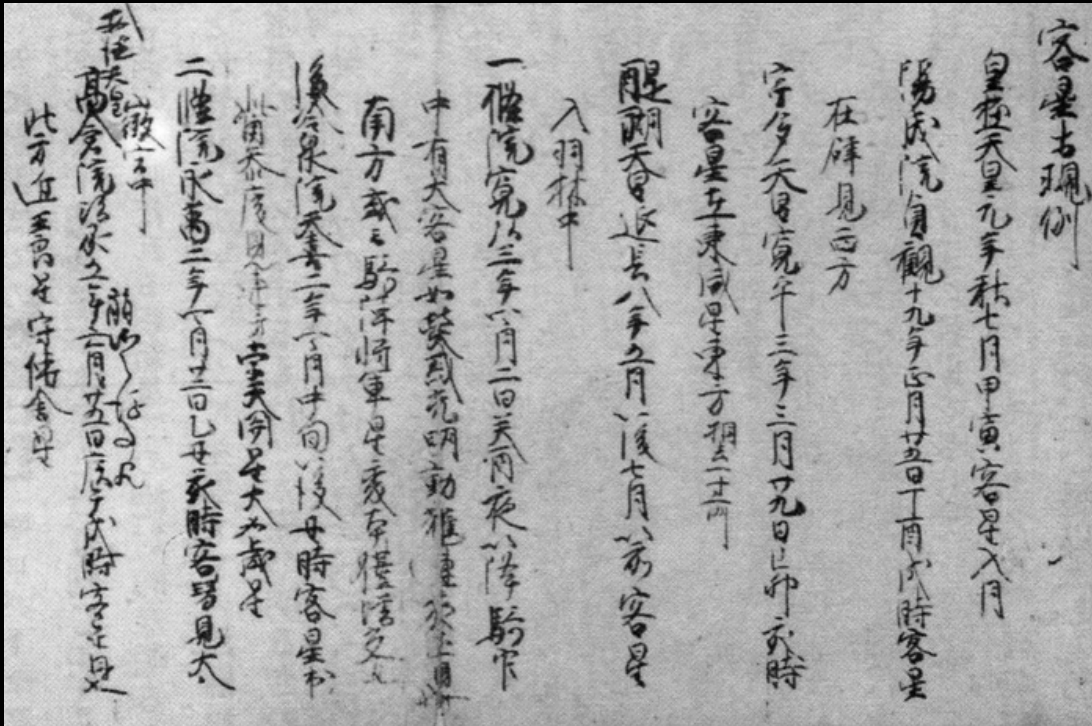 客星古現例
皇極天皇元年秋七月甲寅客星入月
陽成院貞觀十九年正月廿五日丁酉戌時客星
在辟見西方
宇多天皇寛平三年三月廿九日己卯亥時
客星在東咸星東方相去一寸所
醍醐天皇延長八年五月以後七月以前客星
入羽林中
一條院寛弘三年四月二日癸酉夜以降騎官
中有大客星如熒惑光明動耀連夜正見
南方或云騎陣将軍星変本体増光
後冷泉院天喜二年四月中旬以後丑時客星出
觜参度見東方孛天関星大如歳星
二條院永万二年四月廿二日乙丑亥時客星見大
微宮中
高倉院治承五年六月廿五日庚午戌時客星見
北方近王良星守傳舎星